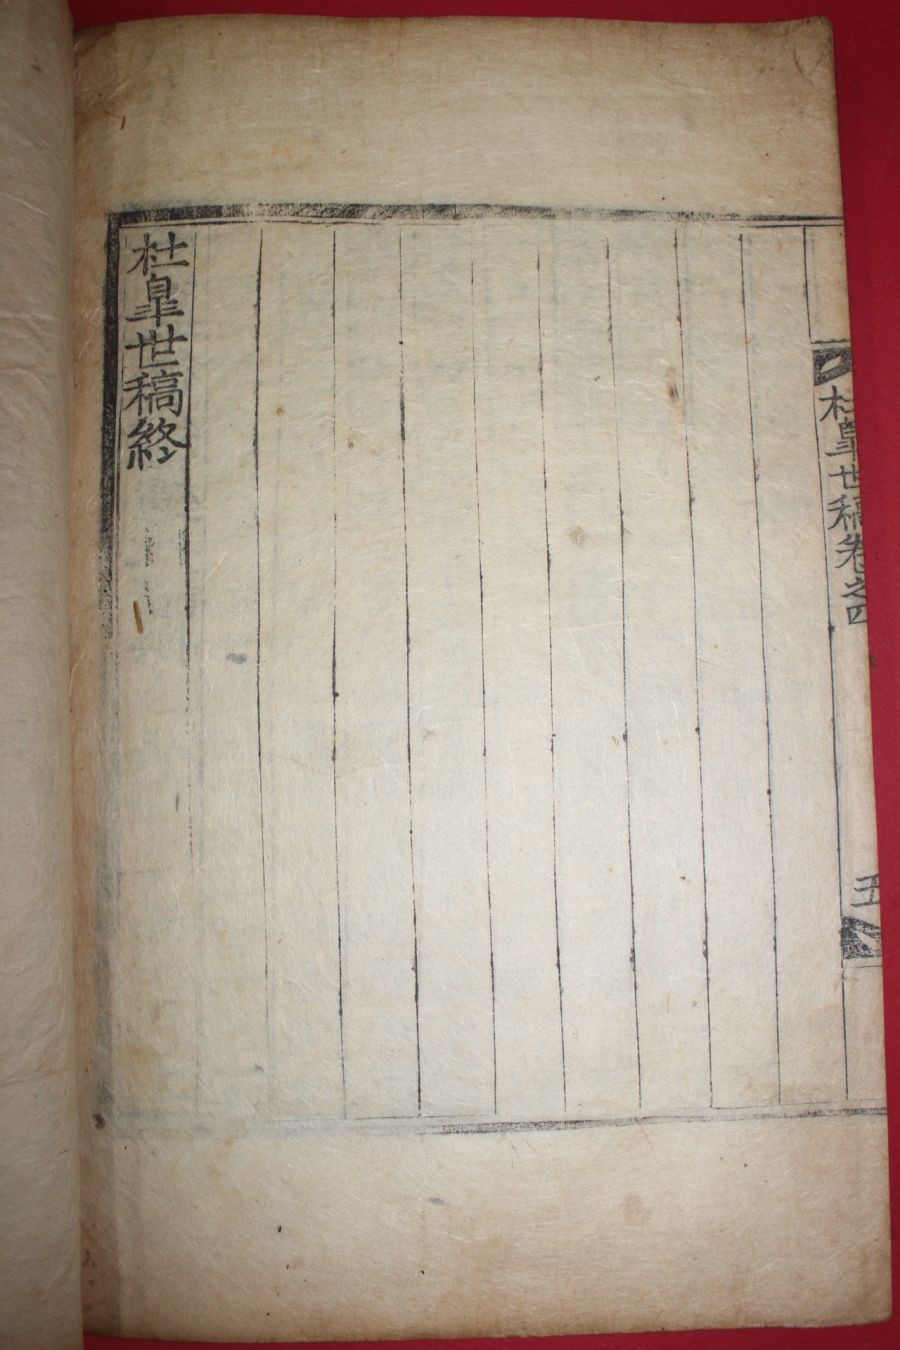 杜皐世稿卷之四
五
杜皐世稿終